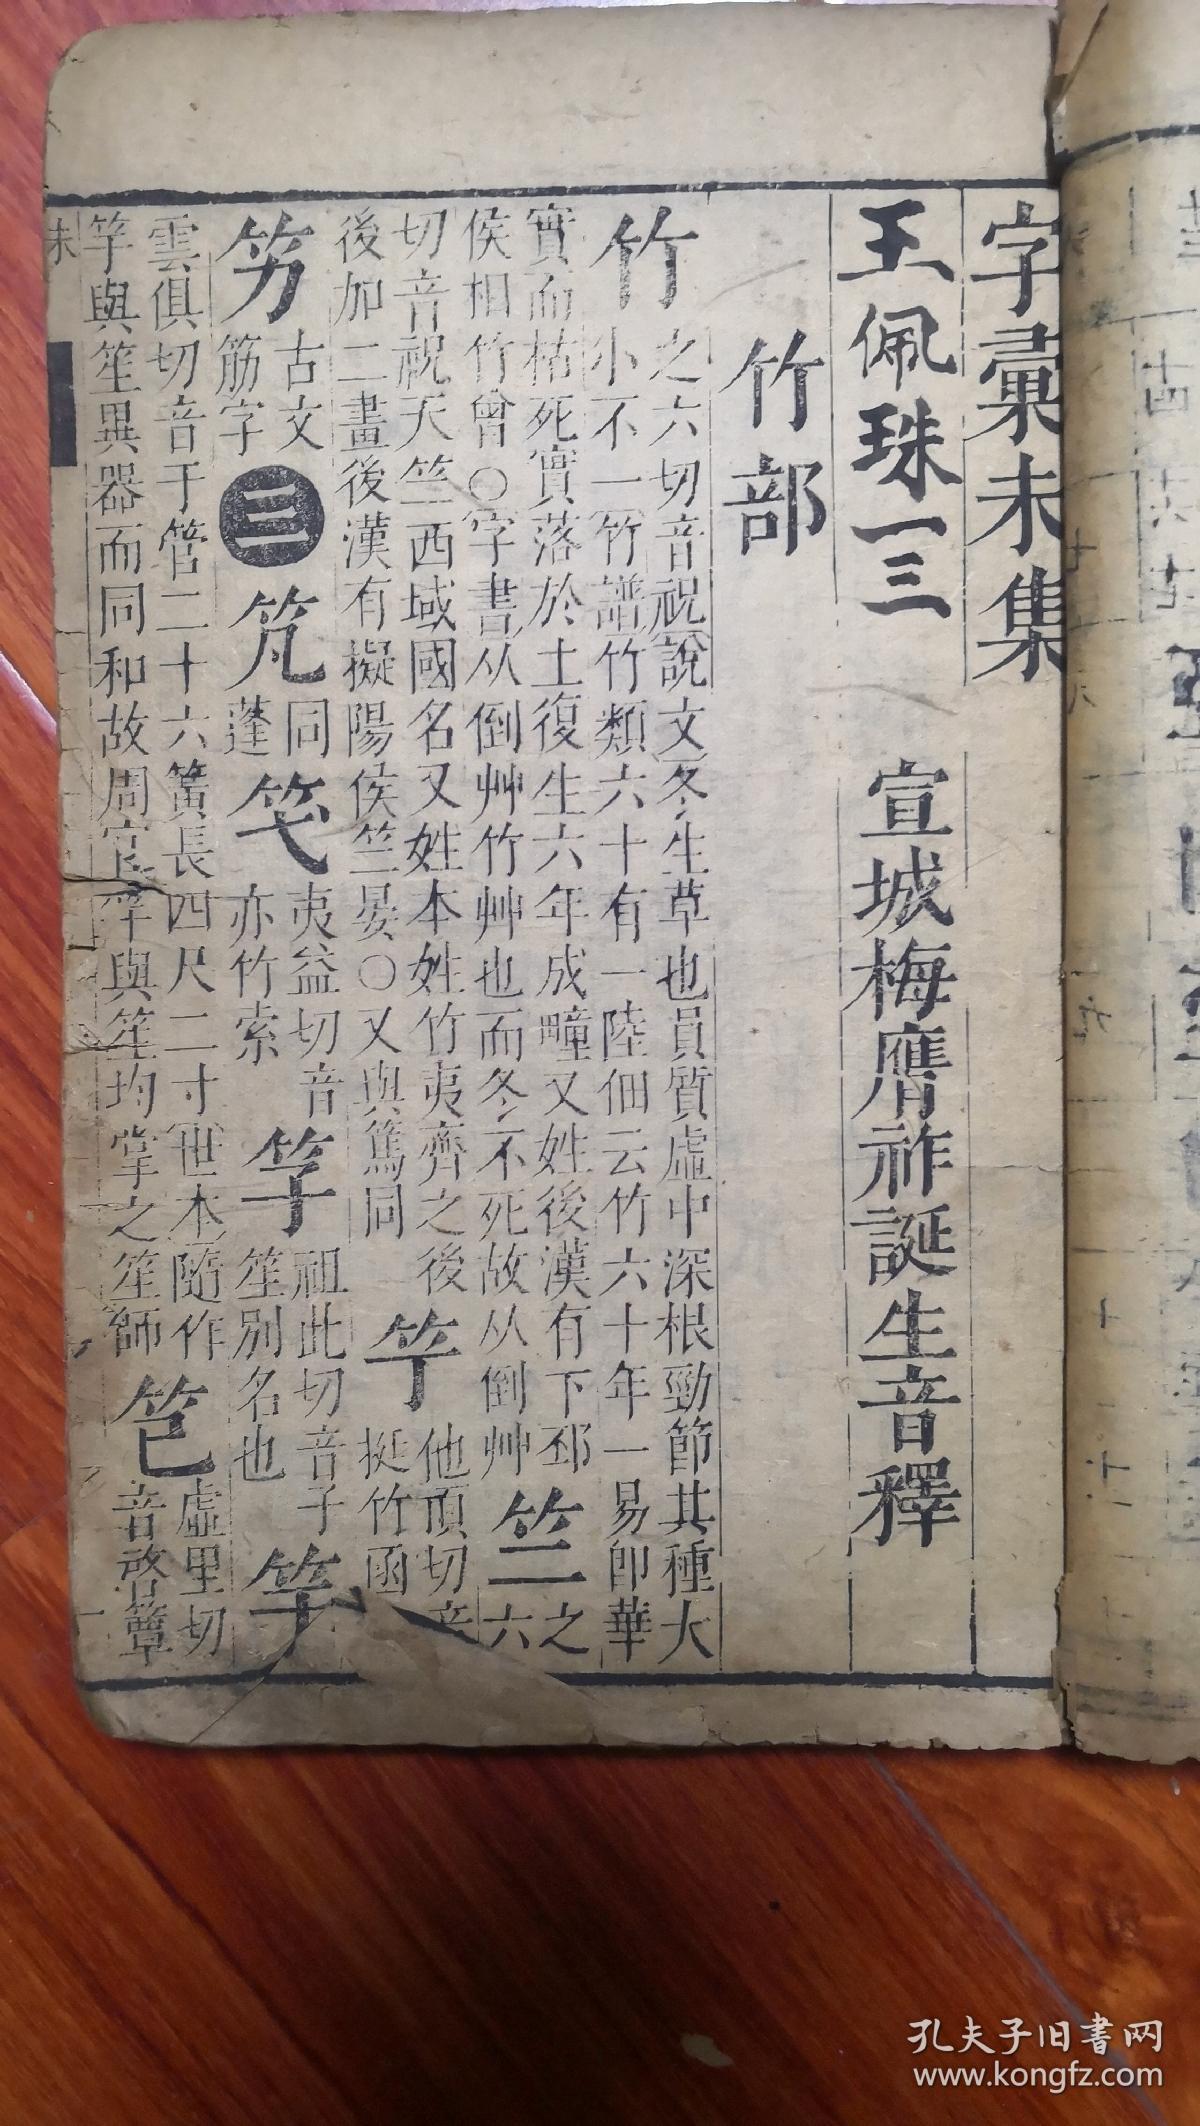 字彙未集
王佩珠一三 宣城梅膺祚誕生音釋
竹部
竹 之六切音祝說文冬生草也員質虛中深根勁節其種大
小不一竹譜竹類六十有一陸佃云竹六十年一易卽華
實而枯死實落於土復生六年成疃又姓後漢有下邳
侯相竹曾○字書从倒艸竹艸也而冬不死故从倒艸 竺 之六
切音祝天竺西域國名又姓本姓竹夷齊之後
後加二畫後漢有擬陽侯竺晏○又與篤同 竹 他頂切音
挺竹函
竻 古文
筋字 三 竼 同
蓬 笩 夷益切音
亦竹索 竽 祖此切音子
笙別名也 竽
雲俱切音于管二十六簧長四尺二寸世本隨作
竽與笙異器而同和故周官竽與笙均掌之笙師 笆 虛里切
音啓簟
未
孔夫子旧书网
www.kongfz.com